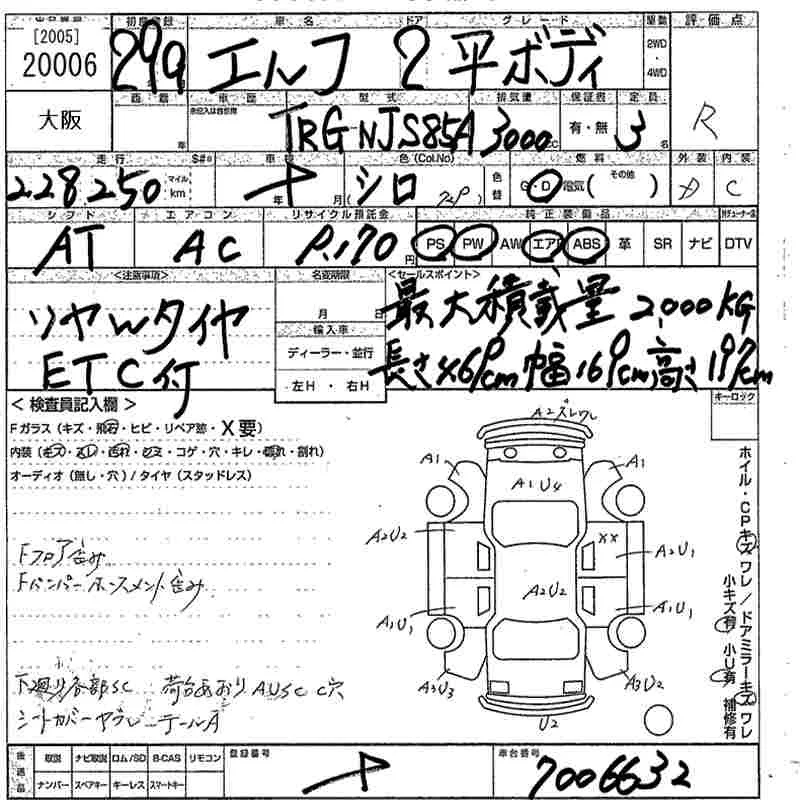 初度登録 車名 ドア グレード 駆動 評価点
[2005]
20006
29.9 エルフ 2 平ボディ 2WD・4WD
大阪
車歴 型式 排気量 保証書 定員
TRG NJS85A 3000cc 有・無 3名 R
走行 S#® 車検 色(Col.No) 燃料 外装 内装
228250 マイル km 年 月 シロ 色替 G・D 電気( その他 ) C
シフト エアコン リサイクル預託金 純正装備品
AT AC 円 PS PW AW エアB ABS 革 SR ナビ DTV
<注意事項> 名変期限 <セールスポイント>
リヤWタイヤ 月 日 最大積載量 2,000KG
ETC付 輸入車 長さ469cm 幅169cm 高さ197cm
ディーラー・並行
左H・右H
<検査員記入欄> キーロック
Fガラス(キズ・飛石・ヒビ・リペア跡・X要)
内装(キズ・スレ・汚れ・シミ・コゲ・穴・キレ・擦れ・割れ)
オーディオ(無し・穴)/タイヤ(スタッドレス)
A2ズレワレ
A1 A1
A1U4
A2U2 XX A2U1
A2U2
A1U1 A1U1
A3U3 A3U2
U2
Fフロア歪み
Fバンパーホースメント歪み
下廻り各部SC 荷台あおりAUSC C穴
シートカバーヤブレ テールA
ホイル・CPキズワレ/ドアミラーキズワレ
小キズ有 小U有 補修有
後送品 取説 ナビ取説 ロム/SD B-CAS リモコン 登録番号 車台番号
ナンバー スペアキー キーレス スマートキー 7006632